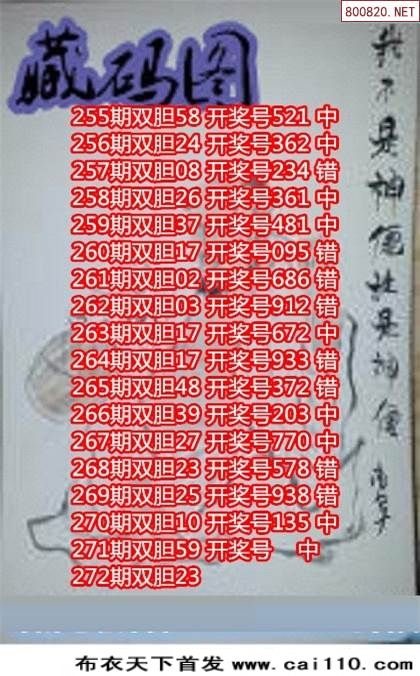 800820.NET
藏码图
255期双胆58 开奖号521 中
256期双胆24 开奖号362 中
257期双胆08 开奖号234 错
258期双胆26 开奖号361 中
259期双胆37 开奖号481 中
260期双胆17 开奖号095 错
261期双胆02 开奖号686 错
262期双胆03 开奖号912 错
263期双胆17 开奖号672 中
264期双胆17 开奖号933 错
265期双胆48 开奖号372 错
266期双胆39 开奖号203 中
267期双胆27 开奖号770 中
268期双胆23 开奖号578 错
269期双胆25 开奖号938 错
270期双胆10 开奖号135 中
271期双胆59 开奖号 中
272期双胆23
我不是神仙胜是神仙
布衣天下首发 www.cai110.com